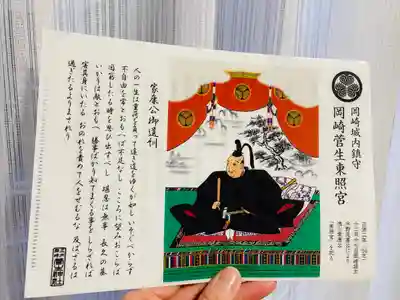 岡崎城内鎮守
岡崎菅生東照宮
家康公御遺訓
人の一生は重荷を負うて遠き道をゆくが如し いそぐべからず
不自由を常とおもへば不足なし こころに望みおこらば
困窮したる時を思ひ出すべし 堪忍は無事 長久の基
いかりは敵とおもへ 勝事ばかり知てまくる事をしらざれば
害其身にいたる おのれを責めて人をせむるな 及ばざるは
過ぎたるよりまされり